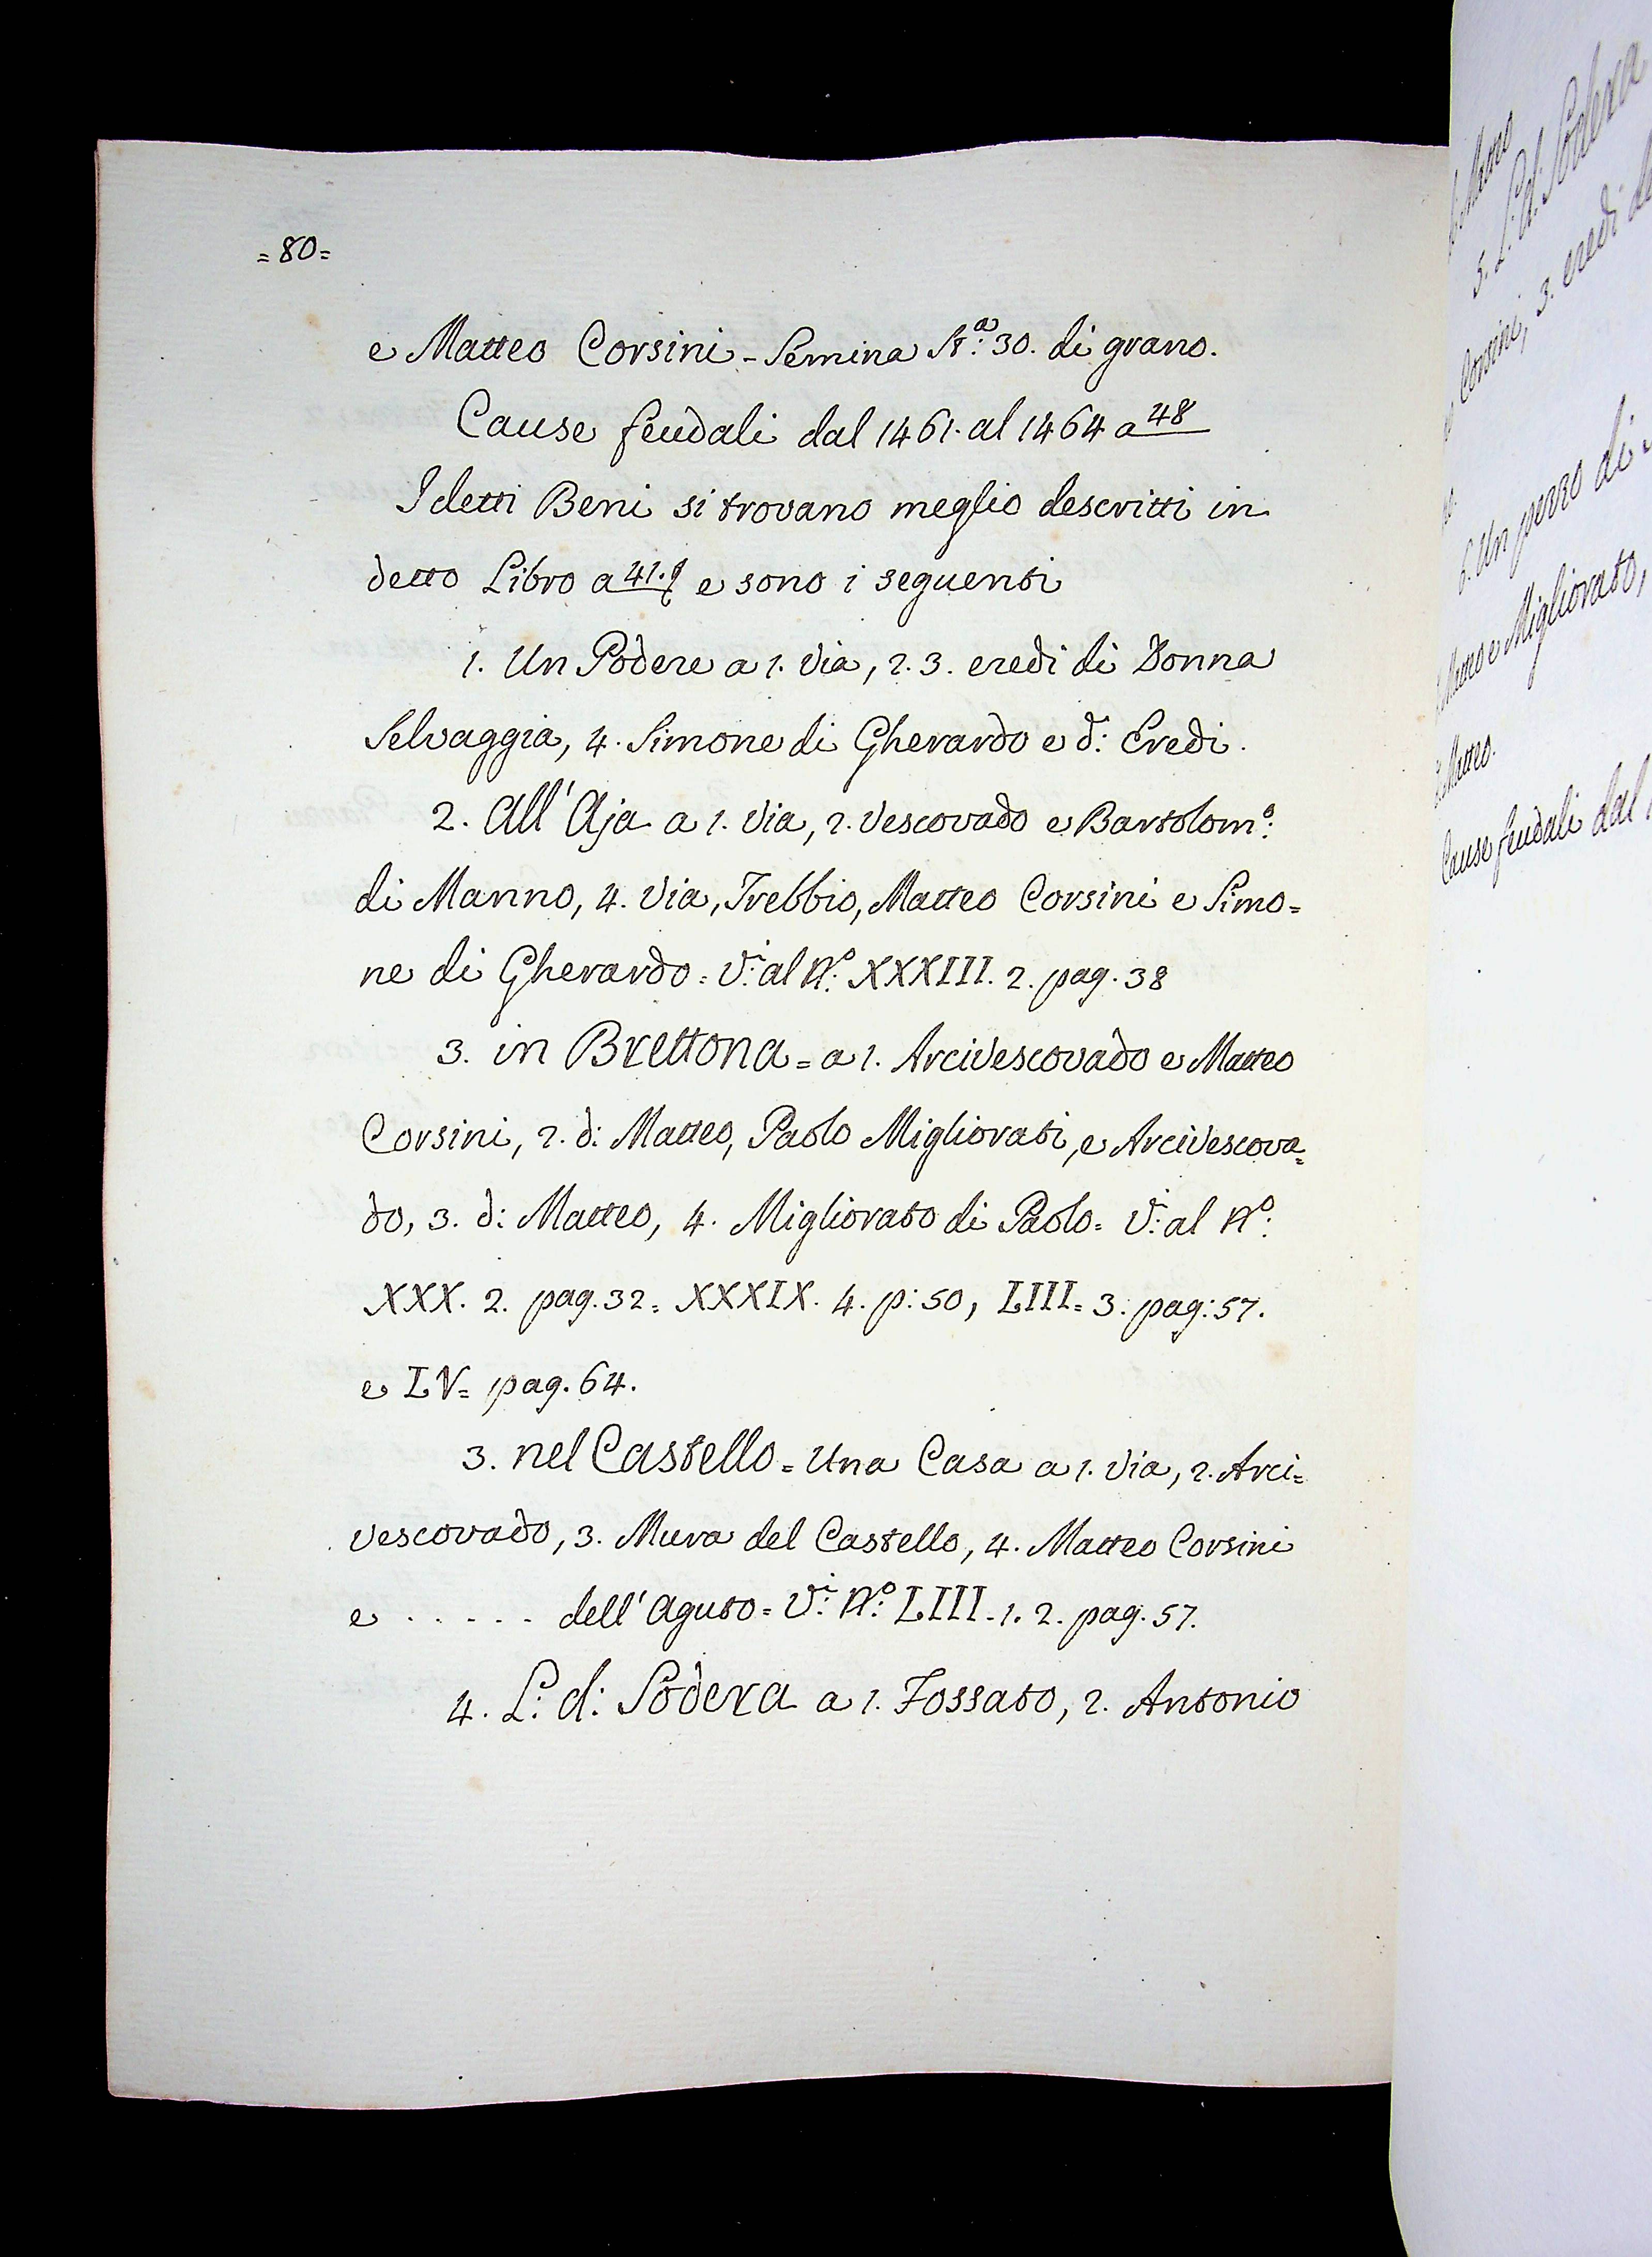 =80=
e Matteo Corsini - Semina St.a: 30. di grano.
Cause feudali dal 1461. al 1464 a 48
I detti Beni si trovano meglio descritti in
detto Libro a 41. e sono i seguenti
1. Un Podere a 1. Via, 2. 3. eredi di Donna
Selvaggia, 4. Simone di Gherardo e d: Eredi.
2. All'Aja a 1. Via, 2. Vescovado e Bartolom.o:
di Manno, 4. Via, Trebbio, Matteo Corsini e Simo=
ne di Gherardo = V.i: al N.o: XXXIII. 2. pag. 38
3. in Brettona = a 1. Arcivescovado e Matteo
Corsini, 2. d: Matteo, Paolo Migliorati, e Arcivescova=
do, 3. d: Matteo, 4. Migliorato di Paolo = V.i: al N.o:
XXX. 2. pag. 32 = XXXIX. 4. p: 50, LIII = 3. pag: 57.
e LV = pag. 64.
3. nel Castello = Una Casa a 1. Via, 2. Arci=
vescovado, 3. Mura del Castello, 4. Matteo Corsini
e . . . . . dell'Aguto = V.i: N.o: LIII. 1. 2. pag. 57.
4. L: d: Sodera a 1. Fossato, 2. Antonio
Matteo
5. L: d: Sodera
Corsini, 3. eredi
6. Un pezzo di
Matteo e Migliorato,
Matteo.
Cause feudali dal